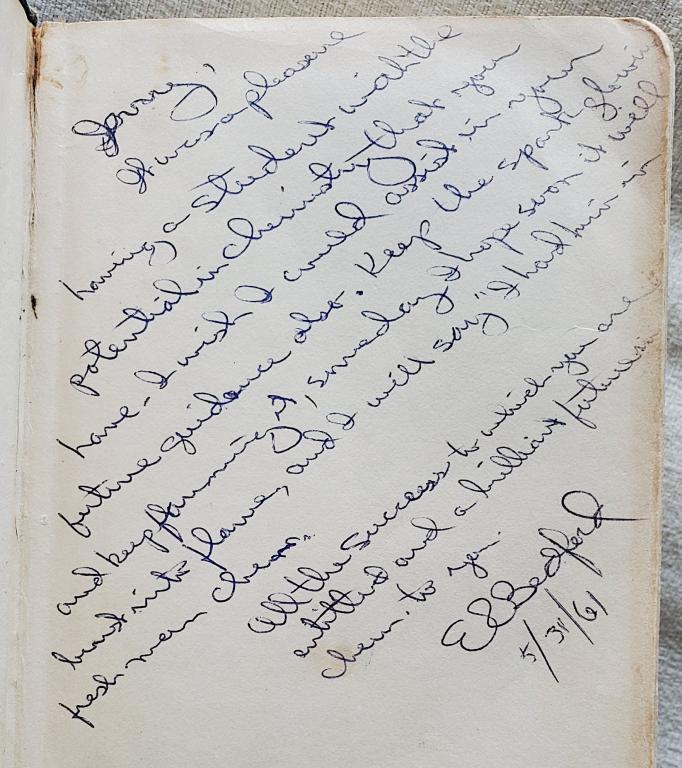 Jerry,
It was a pleasure
having a student with the
potential in chemistry that you
have. I wish I could assist in your
future guidance also. Keep the spark glowing
and keep fanning it, someday I hope soon it will
burst into flame, and I will say "I had him in
freshman chem.
All the success to which you are
entitled and a brilliant future in
chem. to you.
E L Bedford
5/31/61